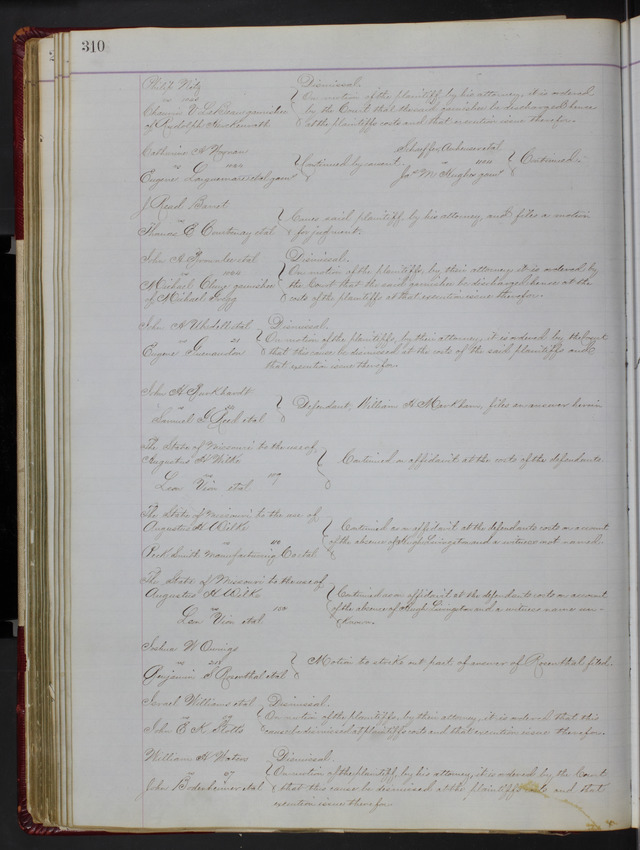 310
Philip
Dismissal.
On motion of the plaintiff, by his attorney, it is ordered
by the Court that the said garnishee be discharged hence
at the plaintiffs costs and that execution issue therefor.
garnishee
of Rudolph
Catharine A
vs
Eugene garn
Continued by consent.
Schaffer et al
vs
Jas M Hughes garn
Continued.
J. Read
vs
Thomas E Courtenay et al
Comes said plaintiff, by his attorney, and files a motion
for judgment.
John A et al
vs
Michael garnishee
of Michael
Dismissal.
On motion of the plaintiffs, by their attorney, it is ordered by
the Court that the said garnishee be discharged hence at the
costs of the plaintiffs & that execution issue therefor.
John et al
vs
Eugene
Dismissal.
On motion of the plaintiffs, by their attorney, it is ordered by the Court
that this cause be dismissed at the costs of the said plaintiffs and
that execution issue therefor.
John H Burkhardt
vs
Samuel et al
Defendant, William H Markham, files an answer herein
The State of Missouri to the use of
Augustus H Wilke
vs
Leo et al
Continued on affidavit at the costs of the defendants.
The State of Missouri to the use of
Augustus H Wilke
vs
Smith Manufacturing Co et al
Continued as on affidavit at the defendants costs on account
of the absence of Hugh Livingston and a witness not named.
The State of Missouri to the use of
Augustus H Wilke
vs
Leo et al
Continued as on affidavit at the defendants costs on account
of the absence of Hugh Livingston and a witness name un-
known.
Joshua W Owings
vs
Benjamin S Rosenthal et al
Motion to strike out part of answer of Rosenthal filed.
Israel Williams et al
vs
John E K
Dismissal.
On motion of the plaintiffs, by their attorney, it is ordered that this
cause be dismissed at plaintiffs costs and that execution issue therefor.
William H Waters
vs 97
John Bodenheimer et al
Dismissal.
On motion of the plaintiff, by his attorney, it is ordered by the Court
that this cause be dismissed at the plaintiffs costs and that
execution issue therefor.